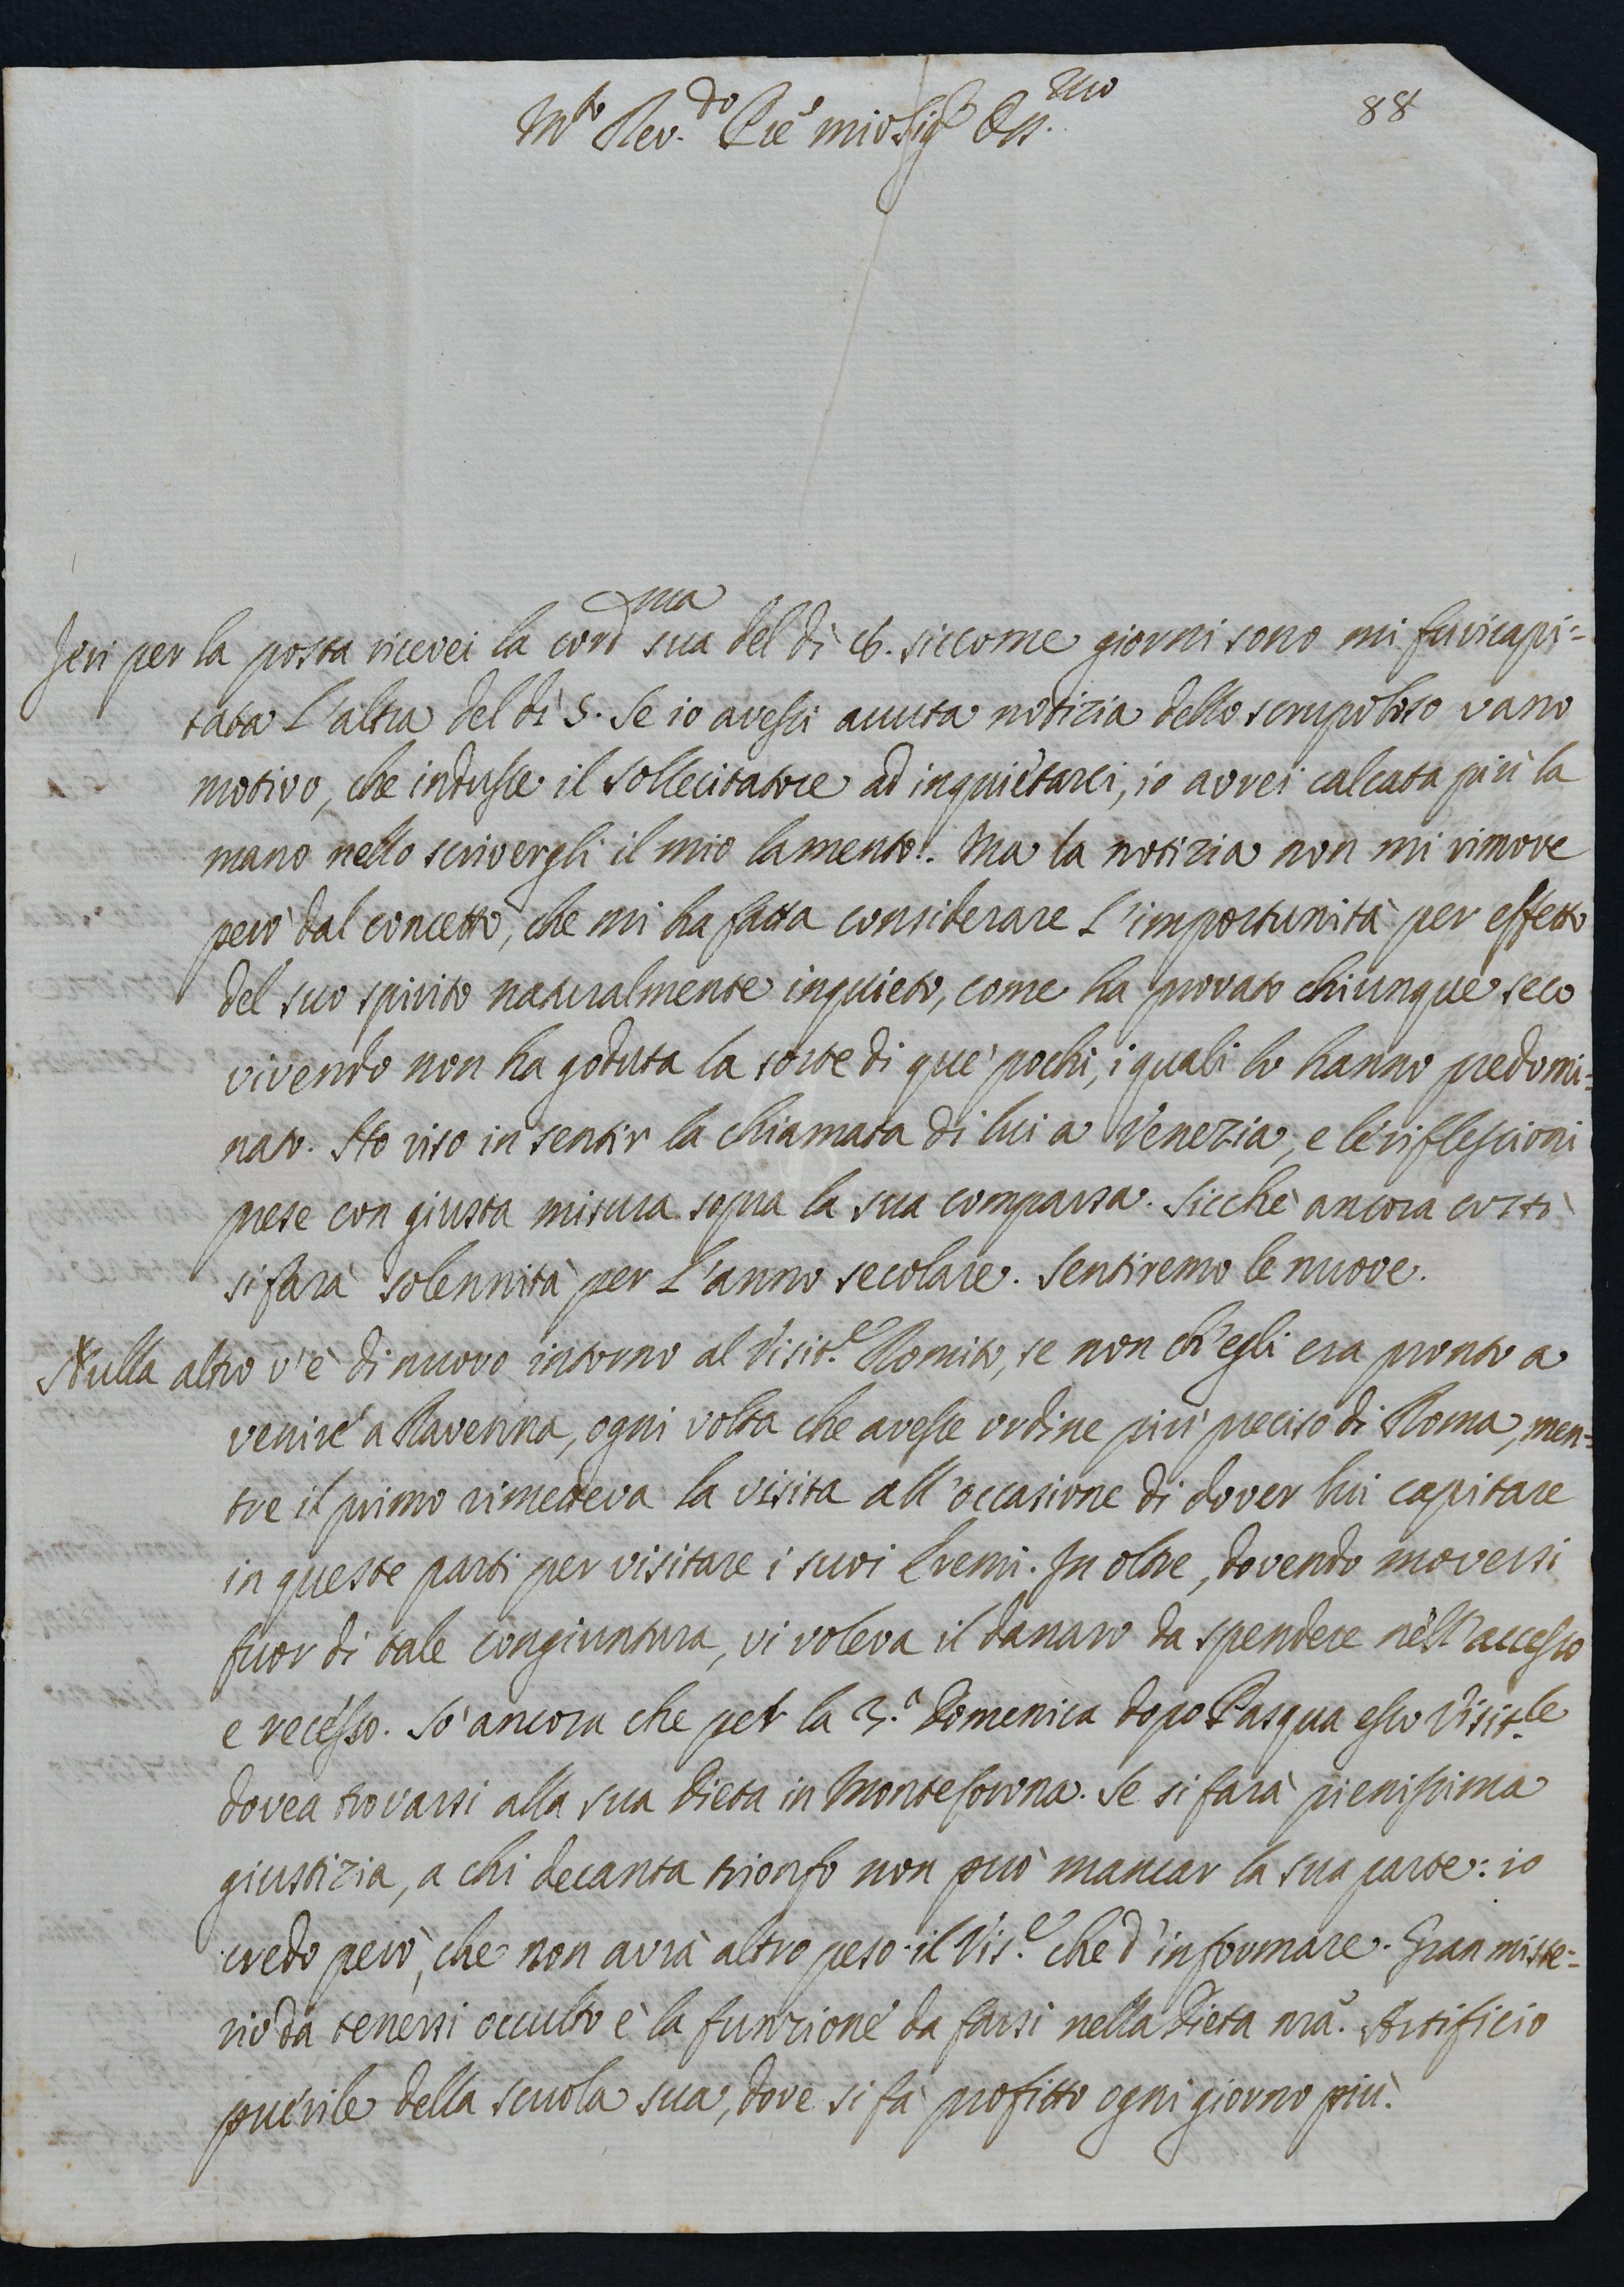 88
M.to Rev.do P̃re mio Sig.r Oss.mo
Jeri per la posta ricevei la cord.ma sua del dì 16. siccome giorni sono mi fu ricapi=
tata l'altra del dì 5. Se io avessi avuta notizia dello scrupoloso vano
motivo, che indusse il Sollecitatore ad inquietarci, io avrei calcata più la
mano nello scrivergli il mio lamento. Ma la notizia non mi rimove
però dal concetto, che mi ha fatta considerare l'importunità per effetto
del suo spirito naturalmente inquieto, come ha provato chiunque seco
vivendo non ha goduta la sorte di que' pochi, i quali lo hanno predomi=
nato. Ho riso in sentir la chiamata di lui a Venezia, e le riflessioni
prese con giusta misura sopra la sua comparsa. Sicchè ancora costì
si farà solennità per l'anno secolare. Sentiremo le nuove.
Nulla altro v'è di nuovo intorno al Visit.e Romito, se non ch'egli era pronto a
venire a Ravenna, ogni volta che avesse ordine più preciso di Roma, men=
tre il primo rimetteva la visita all'occasione di dover lui capitare
in queste parti per visitare i suoi Eremi. In oltre, dovendo moversi
fuor di tale congiuntura, vi voleva il danaro da spendere nell'accesso
e recesso. So ancora che per la 3.a Domenica dopo Pasqua esso Visit.le
dovea trovarsi alla sua Dieta in Montecorona. Se si farà pienissima
giustizia, a chi decanta trionfo non può mancar la sua parte: io
credo però, che non avrà altro peso il Vis.e che d'informare. Gran miste=
rio da tenersi occulto è la funzione da farsi nella Dieta nr̃a. Artificio
puerile della scuola sua, dove si fa profitto ogni giorno più.